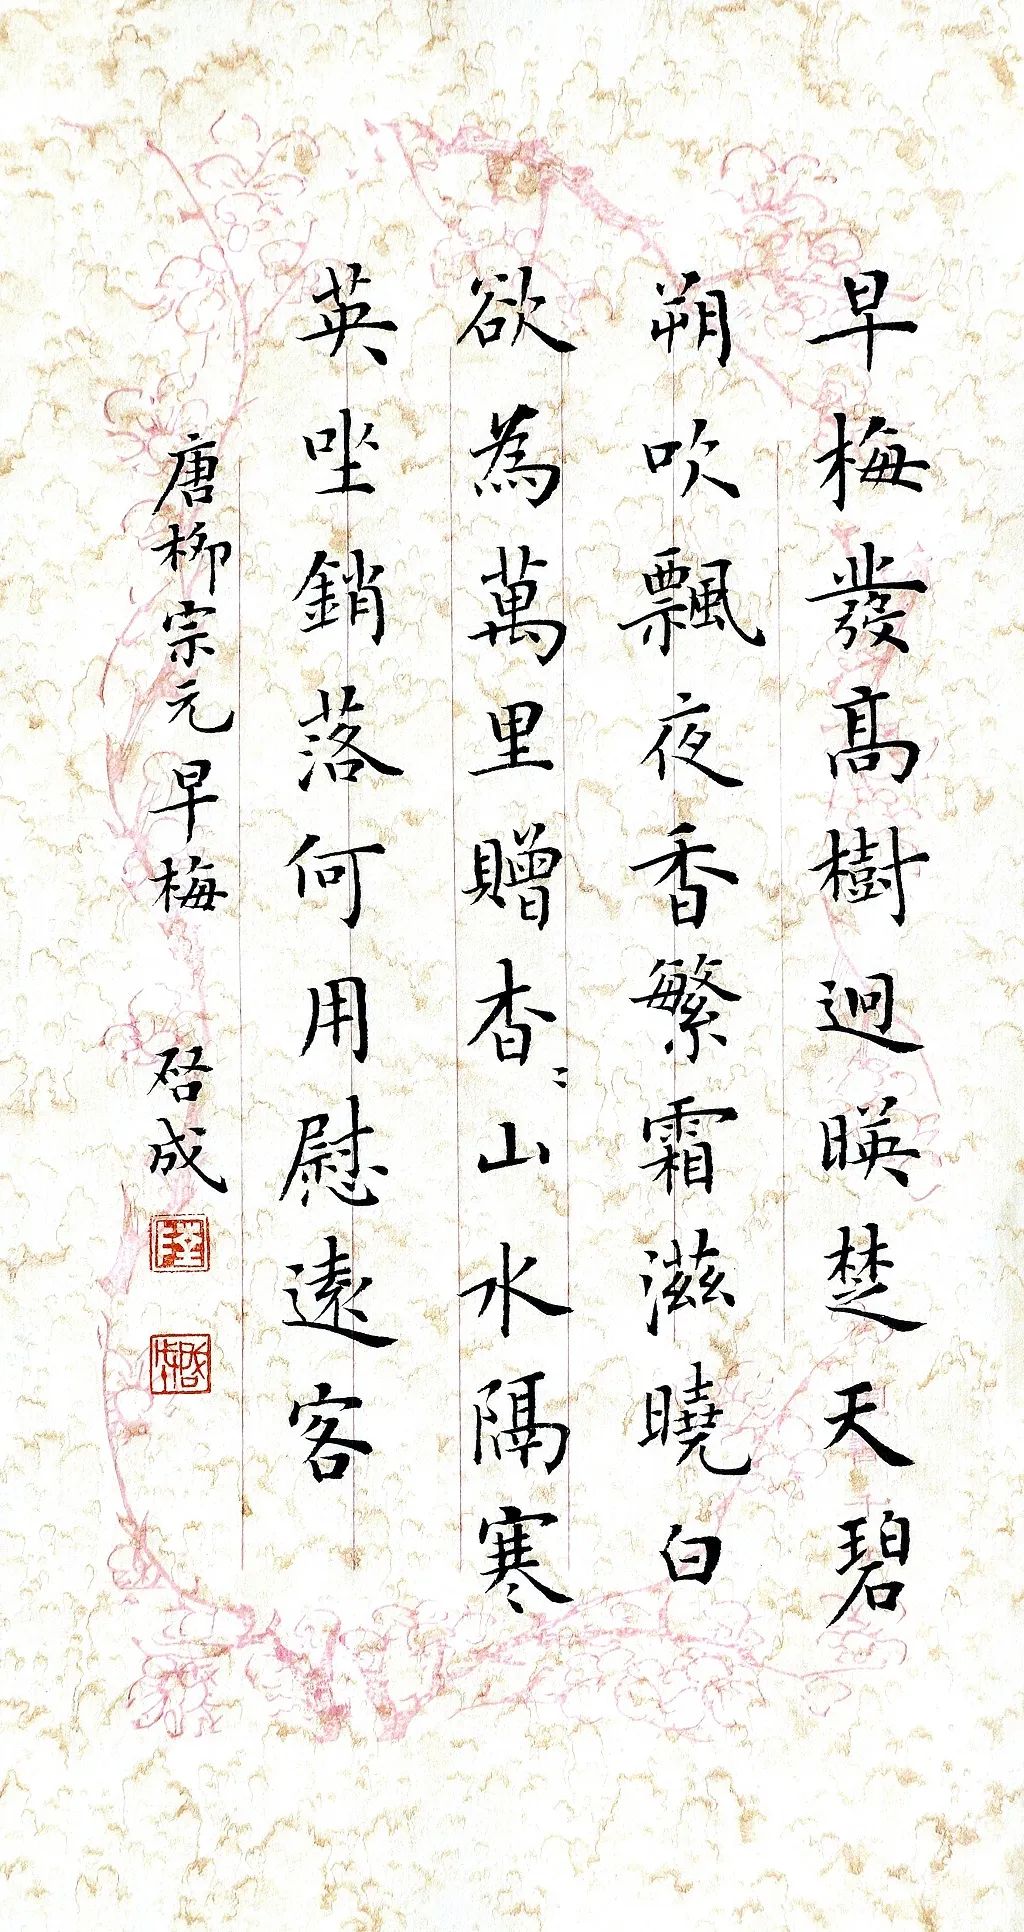 早梅發高樹迥暎楚天碧
朔吹飄夜香繁霜滋曉白
欲為萬里贈杳〻山水隔寒
英坐銷落何用慰遠客
唐柳宗元早梅 啓成